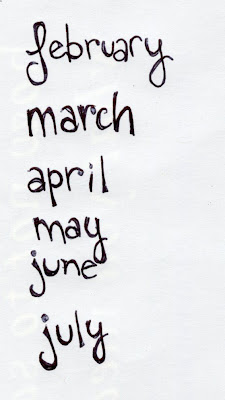 february
march
april
may
june
july